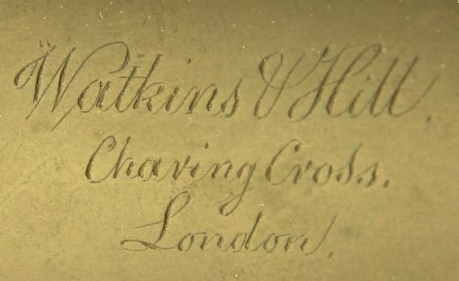 Watkins & Hill.
Charing Cross.
London.